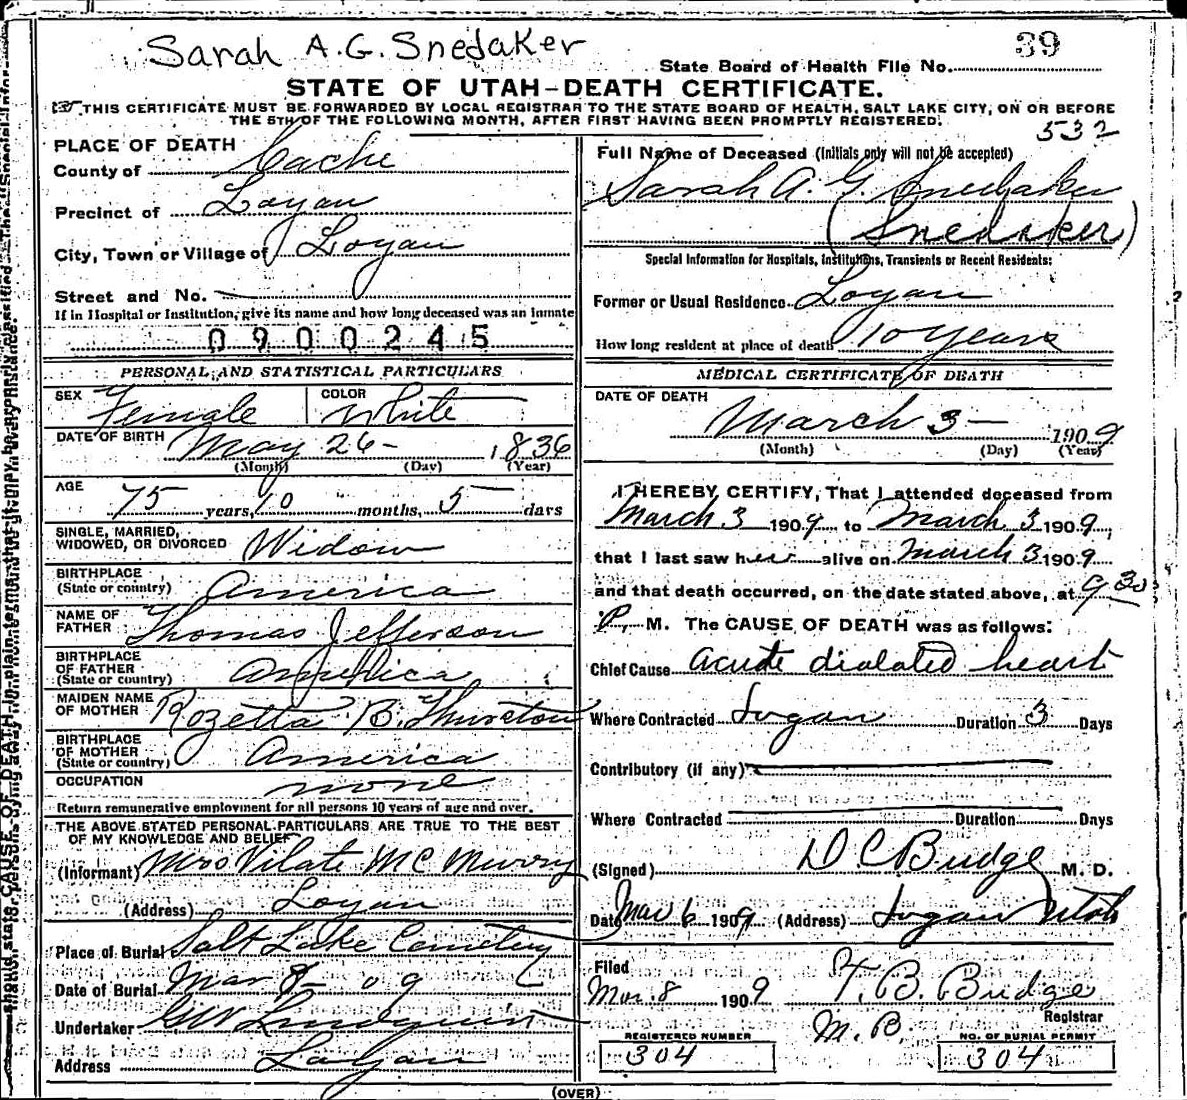 Sarah A.G. Snedaker
39
State Board of Health File No.
STATE OF UTAH-DEATH CERTIFICATE.
THIS CERTIFICATE MUST BE FORWARDED BY LOCAL REGISTRAR TO THE STATE BOARD OF HEALTH, SALT LAKE CITY, ON OR BEFORE
THE 5TH OF THE FOLLOWING MONTH, AFTER FIRST HAVING BEEN PROMPTLY REGISTERED.
532
PLACE OF DEATH
County of Cache
Precinct of Logan
City, Town or Village of Logan
Street and No.
If in Hospital or Institution, give its name and how long deceased was an Inmate
0900245
Full Name of Deceased (Initials only will not be accepted)
Sarah A. G. Snedaker
(Snedaker)
Special Information for Hospitals, Institutions, Transients or Recent Residents:
Former or Usual Residence Logan
How long resident at place of death 10 years
PERSONAL AND STATISTICAL PARTICULARS
SEX Female COLOR White
DATE OF BIRTH May 26 - 1836
(Month) (Day) (Year)
AGE 75 years, 10 months, 5 days
SINGLE, MARRIED,
WIDOWED, OR DIVORCED Widow
BIRTHPLACE
(State or country) America
NAME OF
FATHER Thomas Jefferson
BIRTHPLACE
OF FATHER
(State or country) America
MAIDEN NAME
OF MOTHER Rozetta B. Thurston
BIRTHPLACE
OF MOTHER
(State or country) America
OCCUPATION none
Return remunerative employment for all persons 10 years of age and over.
THE ABOVE STATED PERSONAL PARTICULARS ARE TRUE TO THE BEST
OF MY KNOWLEDGE AND BELIEF
(Informant) Mrs Vilate McMurry
(Address) Logan
Place of Burial Salt Lake Cemetery
Date of Burial Mar 8 - 09
Undertaker GW Lindquist
Address Logan
MEDICAL CERTIFICATE OF DEATH
DATE OF DEATH
March 3 - 1909
(Month) (Day) (Year)
I HEREBY CERTIFY, That I attended deceased from
March 3 1909 to March 3 1909,
that I last saw her alive on March 3 1909
and that death occurred, on the date stated above, at 9 30
P. M. The CAUSE OF DEATH was as follows:
Chief Cause acute dialated heart
Where Contracted Logan Duration 3 Days
Contributory (if any)
Where Contracted Duration Days
(Signed) D C Budge M. D.
Date Mar 6 1909 (Address) Logan Utah
Filed
Mar. 8 1909 F. B. Budge
Registrar
M. B.
REGISTERED NUMBER
304
NO. OF BURIAL PERMIT
304
(OVER)